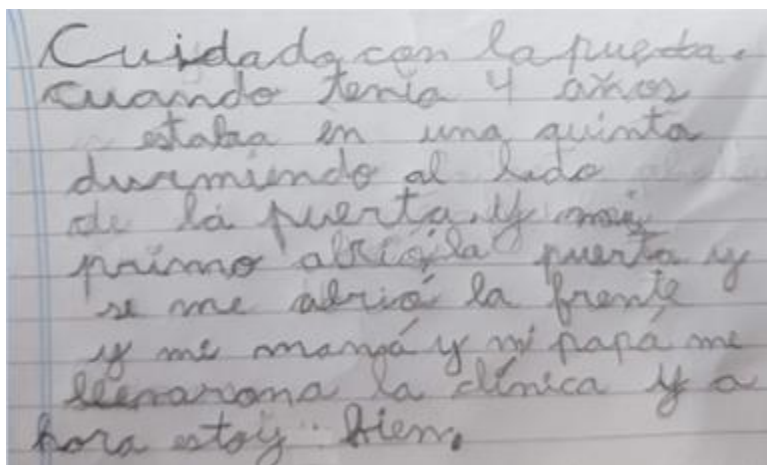 Cuidado con la puerta.
cuando tenía 4 años
estaba en una quinta
durmiendo al lado
de la puerta. Y mi
primo abrió la puerta y
se me abrió la frente
y mi mamá y mi papá me
llevarona la clínica y a
hora estoy bien.